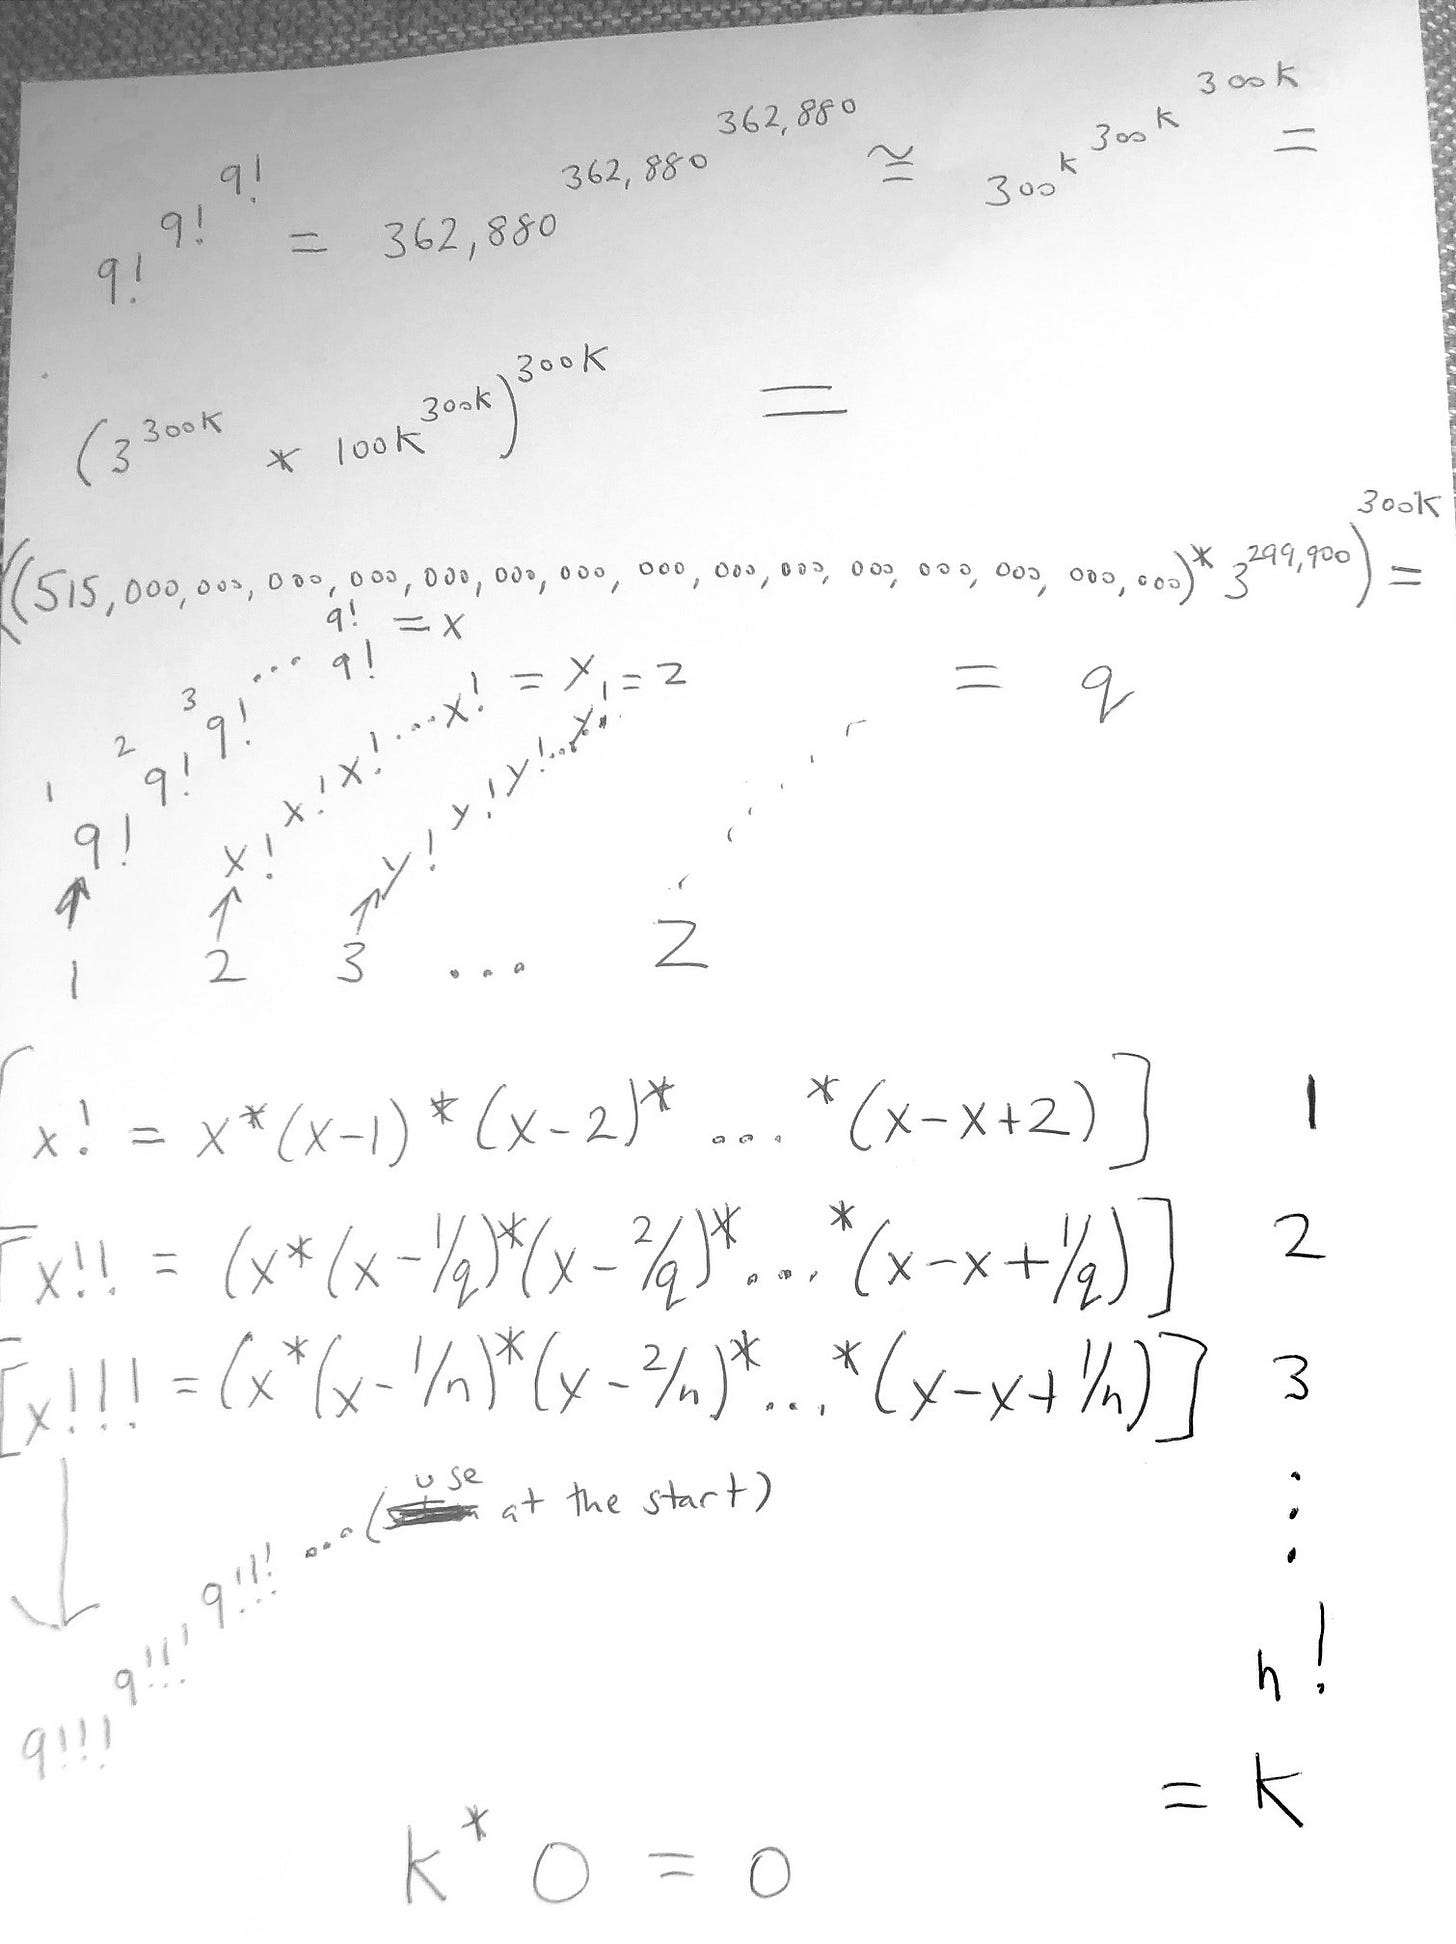 9!^9!^9! = 362,880^362,880^362,880 ≅ 300k^300k^300k =
(3^300k * 100k^300k)^300k =
((515,000,000,000,000,000,000,000,000,000,000,000,000,000,000,000)* 3^299,900)^300k =
1 9! 2 9! 3 9! ... 9! 9! = x
x! x! x! ... x! = x, = 2
y! y! y! ... y.
= q
1 2 3 ... Z
[x! = x*(x-1)*(x-2)* ... *(x-x+2)] 1
[x!! = (x*(x-1/q)*(x-2/q)* ... *(x-x+1/q)] 2
[x!!! = (x*(x-1/n)*(x-2/n)* ... *(x-x+1/n)] 3
⋮
9!!! 9!!! 9!!! ... (use at the start)
n!
= K
k * 0 = 0